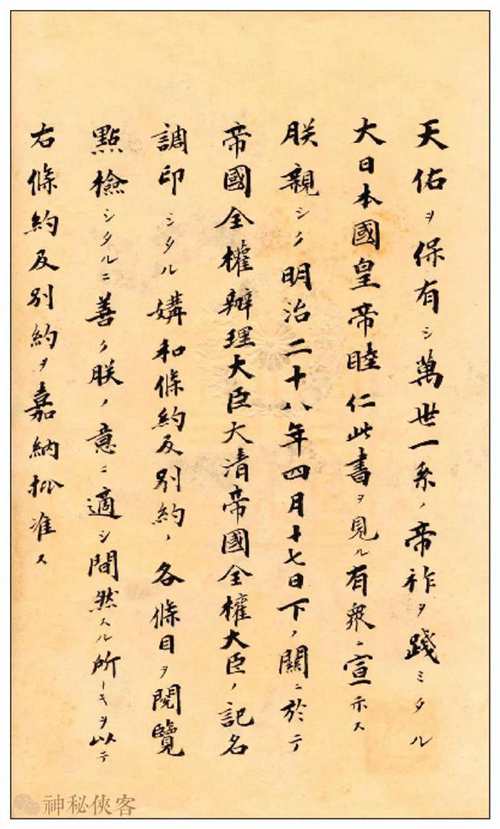 天佑ヲ保有シ萬世一系ノ帝祚ヲ踐ミタル
大日本國皇帝睦仁此書ヲ見ル有衆ニ宣示ス
朕親シク明治二十八年四月十七日下ノ關ニ於テ
帝國全權辦理大臣大清帝國全權大臣ノ記名
調印シタル媾和條約及別約ノ各條目ヲ閲覽
點檢シタルニ善ク朕ノ意ニ適シ間然スル所ナキヲ以テ
右條約及別約ヲ嘉納批准ス
神秘俠客